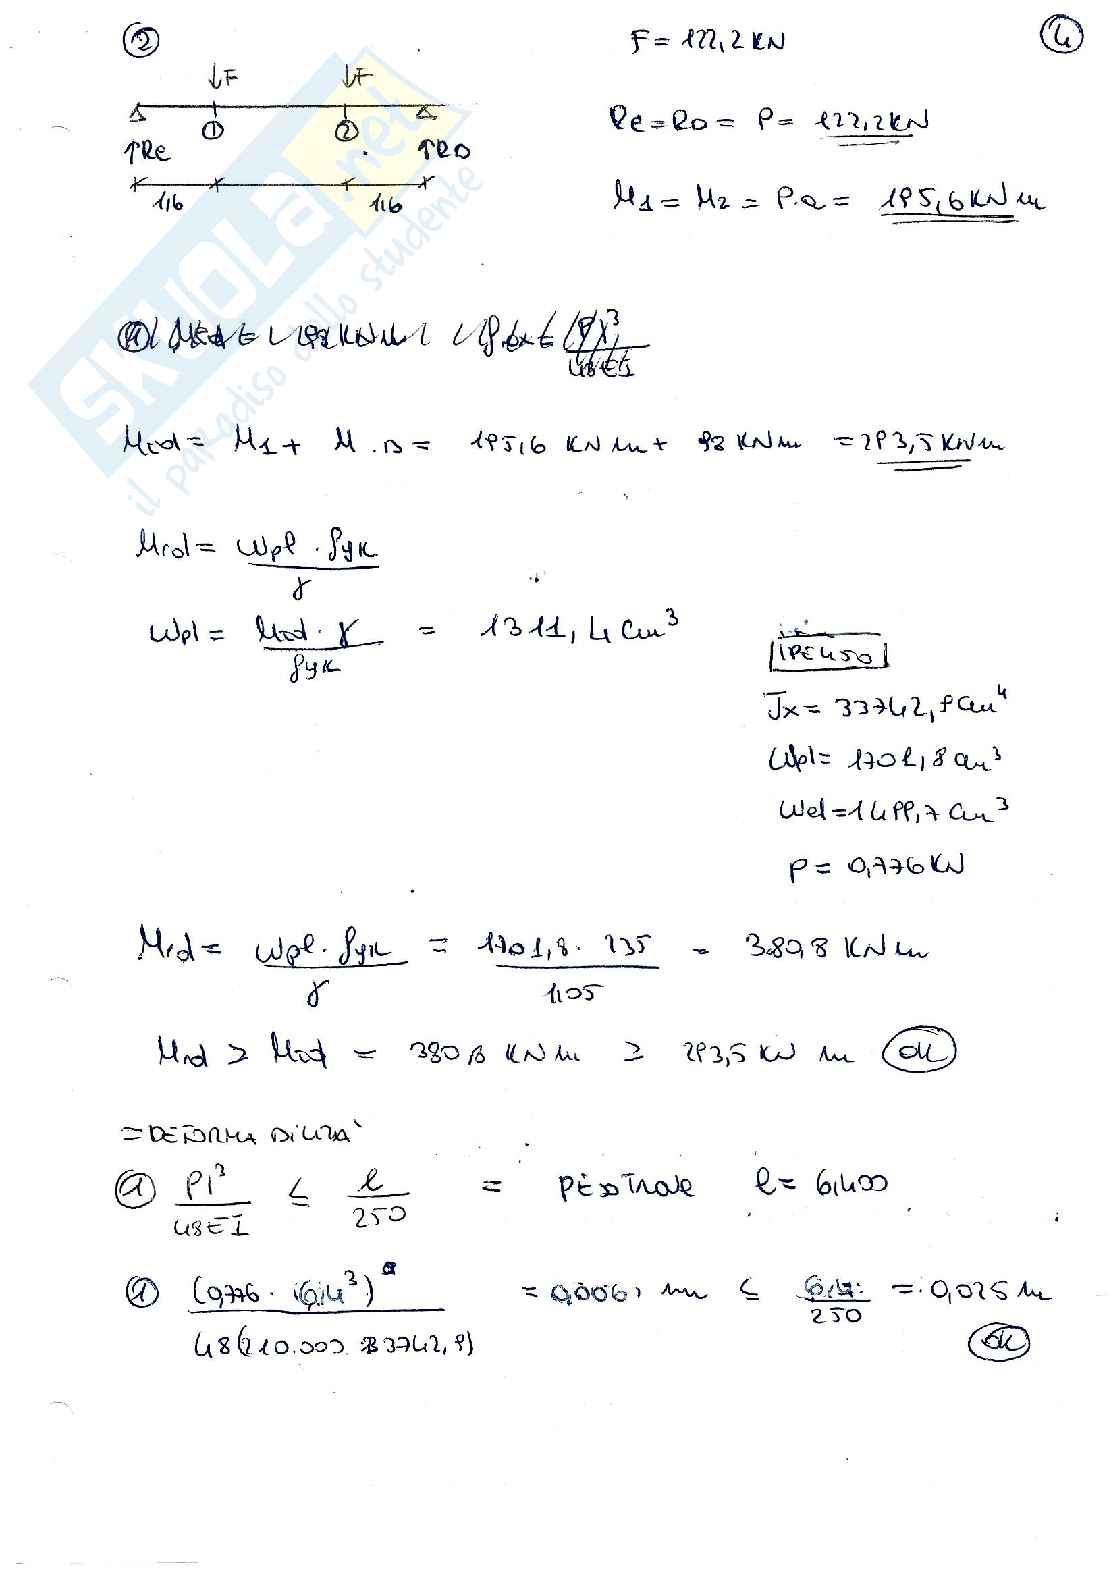 2
F = 122,2 KN
4
↓F ↓F
1 2
↑Rc ↑RD
1,6 1,6
Rc = RD = P = 122,2 KN
M1 = M2 = P.a = 195,6 KN m
SKUOLA.net
il paradiso dello studente
48EI
Med = M1 + M.B = 195,6 KN m + 98 KN m = 293,5 KN m
Mrd = Wpl . fyk / γ
Wpl = Med . γ / fyk = 1311,4 cm³
IPE 450
Jx = 33742,9 cm⁴
Wpl = 1701,8 cm³
Wel = 1499,7 cm³
P = 0,776 KN
Mrd = Wpl . fyk / γ = 1701,8 . 235 / 1,05 = 380,8 KN m
Mrd > Med = 380,8 KN m ≥ 293,5 KN m OK
= DEFORMABILITÀ
1 Pl³ / 48EI ≤ l / 250 = l = 6,400
1 (0,776 . 6,4³) / 48(210.000 . 33742,9) = 0,006 mm ≤ 6,4 / 250 = 0,025 m
OK